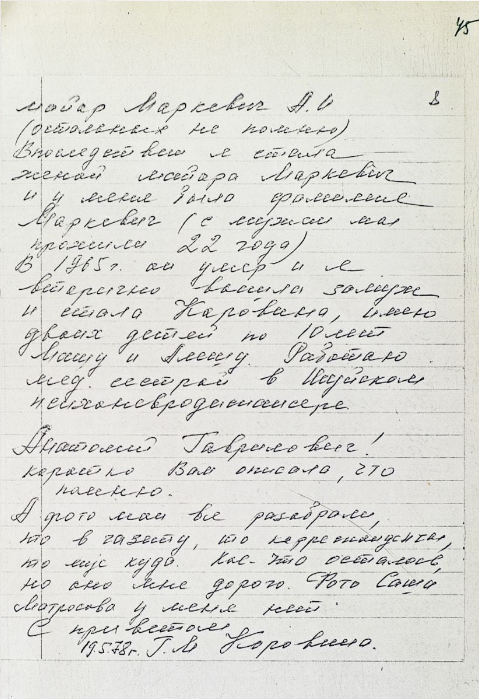 45
8
майор Маркевич А.И
(остальных не помню)
Впоследствии я стала
женой майора Маркевич
и у меня была фамилия
Маркевич (с мужем мы
прожили 22 года)
В 1965г. он умер и я
вторично вышла замуж
и стала Коровина, имею
двоих детей по 10 лет
Машу и Алешу. Работаю
мед. сестрой в Шуйском
психоневродиспансере
Анатолий Гаврилович!
коротко Вам описала, что
помню.
А фото мои все разобрали,
то в газету, то корреспонденты,
то ещё куда. Кое-что осталось,
но оно мне дорого. Фото Саши
Матросова у меня нет
С приветом
19.5.78г. Г.М Коровина.